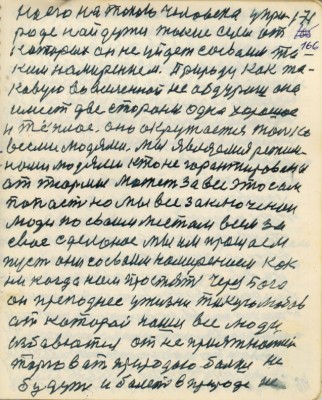 на его на такого человека у при-171
роде найдути такие силы от 166
которых он не уйдет сосвоим та-
ким намирением. Природу как та-
кавую во вселенной не обдуриш она
имеет две стороны одна хорошая
и теплое. оно окружается только
всеми людями. мы являемся
нами людями кто не гарантированы
от тюрмы может за все это сам
попаст но мы все заключеной
люди по своим местам всем за
свое сделаное мы им прощаем
пуст они сосвоим намирением как
ни когда нам простят Через Бога
он преподнес у жизни такую любов
от которой наши все люди
избавются от не приятностей
торговат природою больш не
будут и болеть в природе не